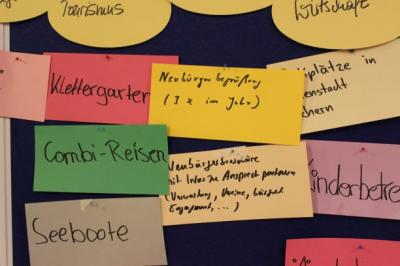 Tourismus
Wirtschaft
Klettergarten
Neubürgerbegrüßung
(3 x im Jahr)
plätze in
enstadt
chern
Combi-Reisen
Neubürgerbroschüre
mit Infos zu Ansprechpartnern
(Verwaltung, Vereine, bürgerl.
Engagement, ...)
Kinderbetre
Seeboote